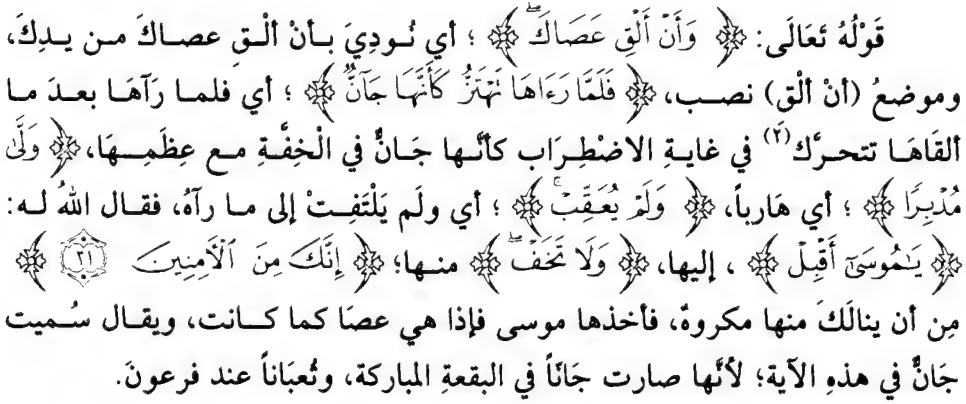 قَوْلُهُ تَعَالَى: ﴿ وَأَنْ أَلْقِ عَصَاكَ ۖ ﴾ ؛ أي نُودِيَ بأنْ ألْقِ عصاكَ من يدِكَ،
وموضعُ (أنْ ألْق) نصب، ﴿ فَلَمَّا رَءَاهَا تَهْتَزُّ كَأَنَّهَا جَآنٌّ ﴾ ؛ أي فلما رَآهَا بعدَ ما
ألقَاهَا تتحرَّك(٢) في غايةِ الاضْطِرَاب كأنَّها جَانٌّ في الْخِفَّةِ مع عِظَمِهَا، ﴿ وَلَّىٰ
مُدْبِرًا ﴾ ؛ أي هَارباً، ﴿ وَلَمْ يُعَقِّبْ ۚ ﴾ ؛ أي ولَم يَلْتَفِتْ إلى ما رآهُ، فقال اللهُ له:
﴿ يَـٰمُوسَىٰٓ أَقْبِلْ ﴾ ، إليها، ﴿ وَلَا تَخَفْ ۖ ﴾ منها؛ ﴿ إِنَّكَ مِنَ ٱلْأَمِنِينَ ٣١ ﴾
مِن أن ينالَكَ منها مكروهٌ، فأخذها موسى فإذا هي عصَا كما كانت، ويقال سُميت
جَانٌّ في هذهِ الآية؛ لأنَّها صارت جَانّاً في البقعةِ المباركة، وثُعبَاناً عند فرعونَ.